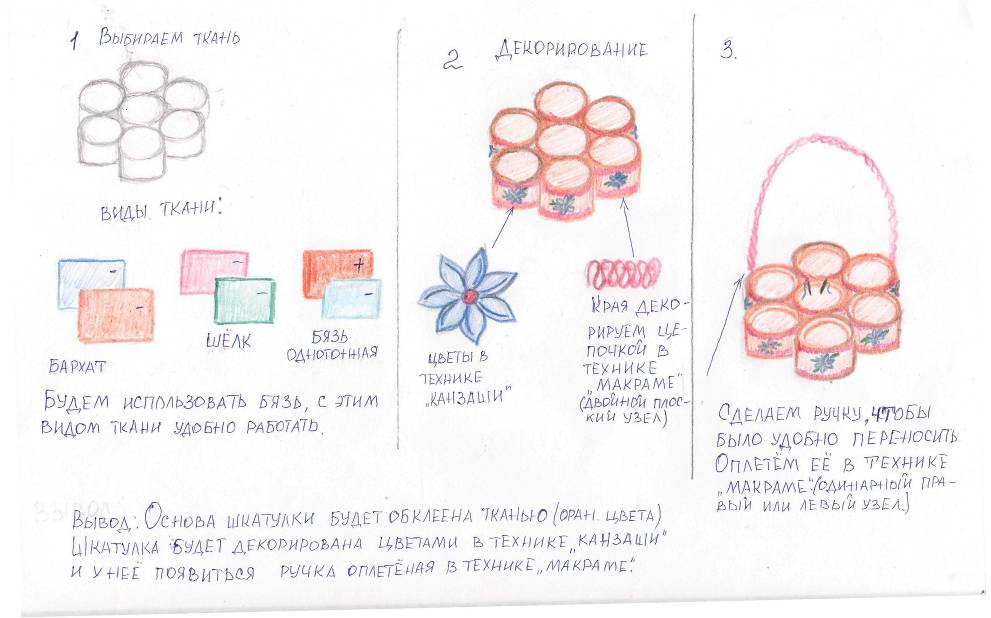 1 Выбираем ткань
виды ткани:
-
-
-
-
+
-
Бархат
Шёлк
Бязь
однотонная
Будем использовать бязь, с этим
видом ткани удобно работать.
2 Декорирование
цветы в
технике
„канзаши“
Края деко-
рируем це-
почкой в
технике
„макраме“
(двойной плос-
кий узел)
3.
Сделаем ручку, чтобы
было удобно переносить
Оплетём её в технике
„макраме“. (одинарный пра-
вый или левый узел.)
Вывод: Основа шкатулки будет обклеена тканью (оран. цвета)
Шкатулка будет декорирована цветами в технике „канзаши“
и у неё появиться ручка оплетёная в технике „макраме“.